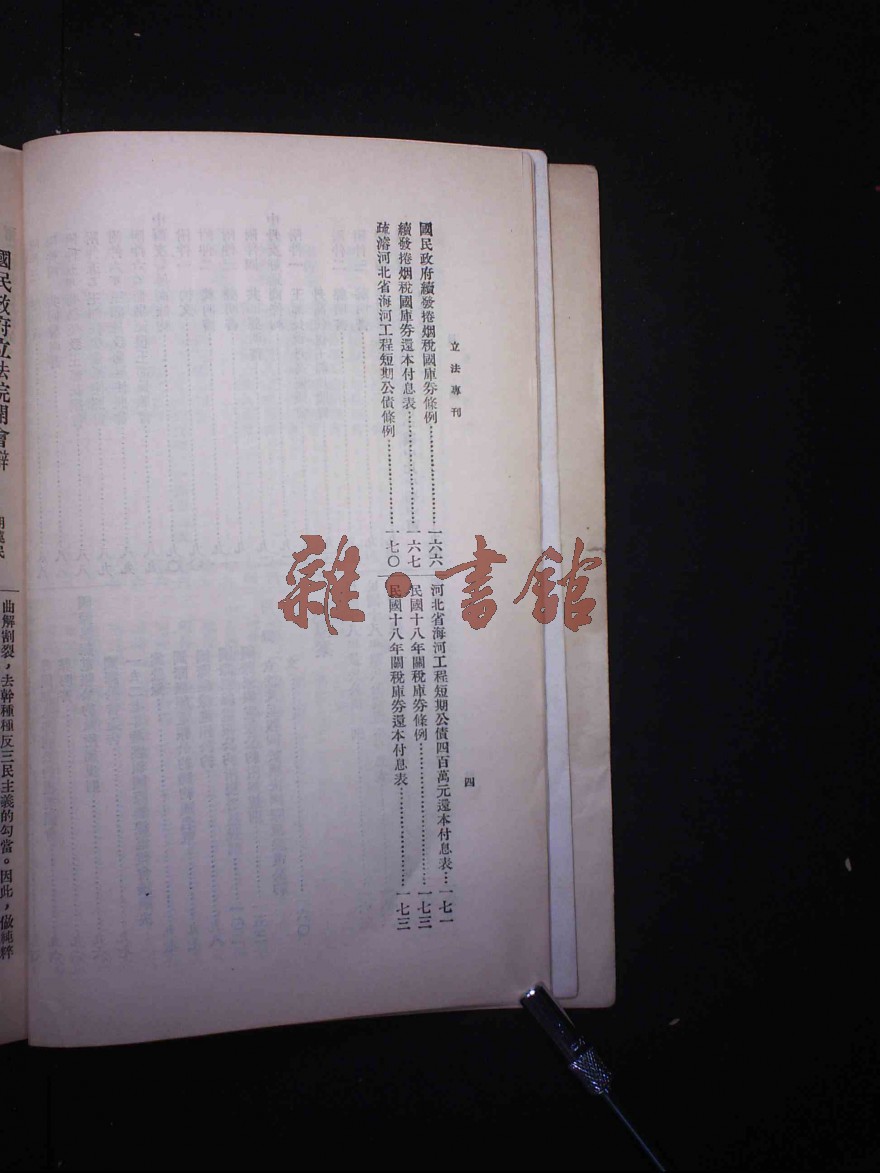 立法專刊
四
國民政府續發捲烟稅國庫券條例…………一六六
續發捲烟稅國庫券還本付息表…………一六七
疏濬河北省海河工程短期公債條例…………一七〇
河北省海河工程短期公債四百萬元還本付息表…一七一
民國十八年關稅庫券條例…………一七三
民國十八年關稅庫券還本付息表…………一七三
國民政府立法院開會辭
曲解割裂，去幹種種反三民主義的勾當。因此，做純粹
雜·書館